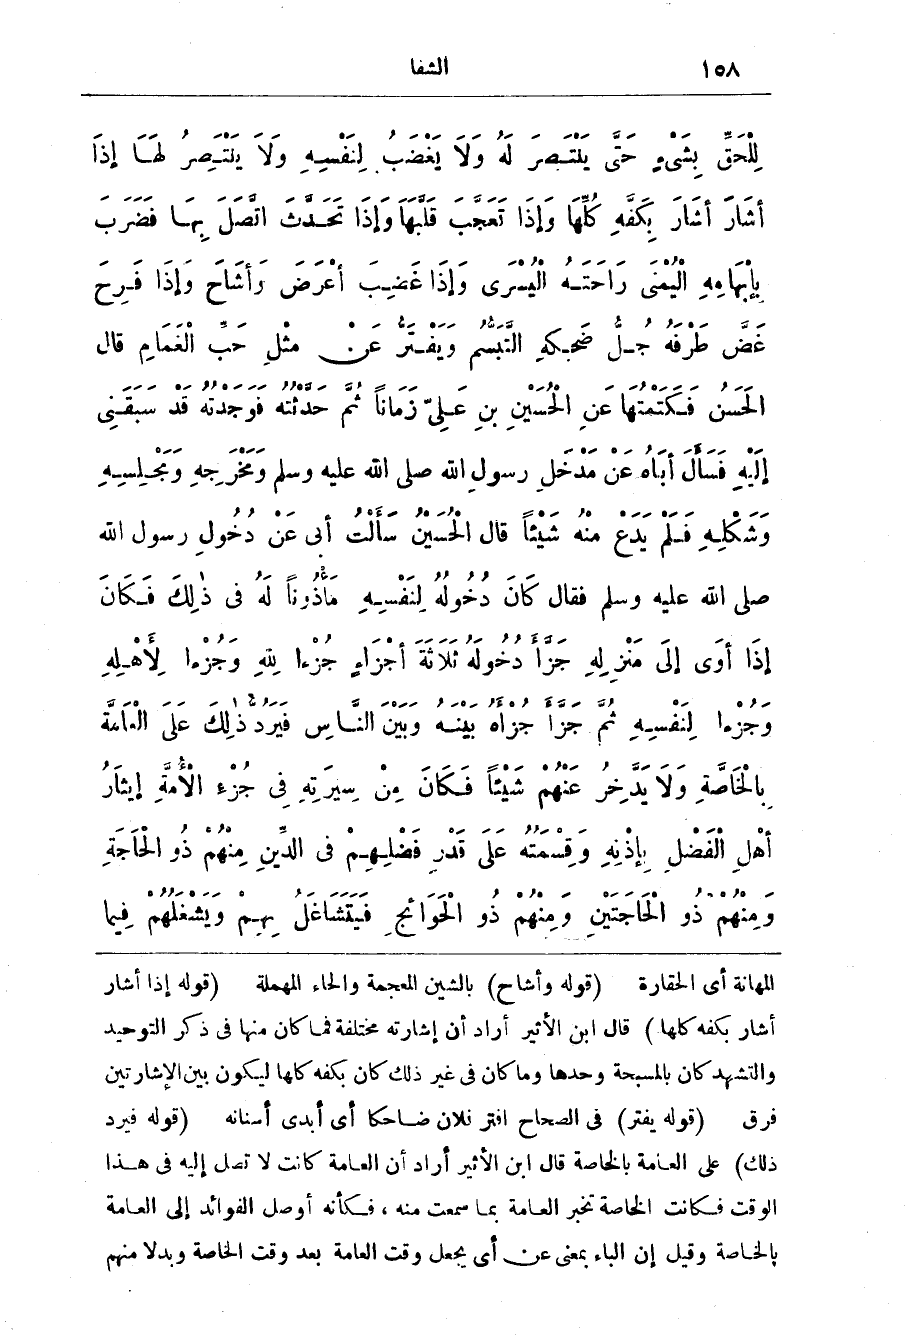 ١٥٨ الشفا
لِلْحَقِّ بِشَىْءٍ حَتَّى يَنْتَصِرَ لَهُ وَلَا يَغْضَبُ لِنَفْسِهِ وَلَا يَنْتَصِرُ لَهَا إِذَا
أَشَارَ أَشَارَ بِكَفِّهِ كُلِّهَا وَإِذَا تَعَجَّبَ قَلَّبَهَا وَإِذَا تَحَدَّثَ اتَّصَلَ بِهَا فَضَرَبَ
بِإِبْهَامِهِ الْيُمْنَى رَاحَتَهُ الْيُسْرَى وَإِذَا غَضِبَ أَعْرَضَ وَأَشَاحَ وَإِذَا فَرِحَ
غَضَّ طَرْفَهُ جُلُّ ضَحِكِهِ التَّبَسُّمُ وَيَفْتَرُّ عَنْ مِثْلِ حَبِّ الْغَمَامِ قال
الْحَسَنُ فَكَتَمْتُهَا عَنِ الْحُسَيْنِ بنِ عَلِىّ زَمَاناً ثُمَّ حَدَّثْتُهُ فَوَجَدْتُهُ قَدْ سَبَقَنِى
إِلَيْهِ فَسَأَلَ أَبَاهُ عَنْ مَدْخَلِ رسولِ الله صلى الله عليه وسلم وَمَخْرَجِهِ وَمَجْلِسِهِ
وَشَكْلِهِ فَلَمْ يَدَعْ مِنْهُ شَيْئاً قال الْحُسَيْنُ سَأَلْتُ أبى عَنْ دُخُولِ رسول الله
صلى الله عليه وسلم فقال كَانَ دُخُولُهُ لِنَفْسِهِ مَأْذُوناً لَهُ فى ذٰلِكَ فَكَانَ
إِذَا أَوَى إِلَى مَنْزِلِهِ جَزَّأَ دُخُولَهُ ثَلَاثَةَ أَجْزَاءٍ جُزْءًا لِلهِ وَجُزْءًا لِأَهْلِهِ
وَجُزْءًا لِنَفْسِهِ ثُمَّ جَزَّأَ جُزْأَهُ بَيْنَهُ وَبَيْنَ النَّاسِ فَيَرُدُّ ذٰلِكَ عَلَى الْعَامَّةِ
بِالْخَاصَّةِ وَلَا يَدَّخِرُ عَنْهُمْ شَيْئاً فَكَانَ مِنْ سِيرَتِهِ فِى جُزْءِ الْأُمَّةِ إِيثَارُ
أَهْلِ الْفَضْلِ بِإِذْنِهِ وَقِسْمَتُهُ عَلَى قَدْرِ فَضْلِهِمْ فى الدِّينِ مِنْهُمْ ذُو الْحَاجَةِ
وَمِنْهُمْ ذُو الْحَاجَتَيْنِ وَمِنْهُمْ ذُو الْحَوَائِجِ فَيَتَشَاغَلُ بِهِمْ وَيَشْغَلُهُمْ فِيمَا
المهانة أى الحقارة (قوله وأشاح) بالشين المعجمة والحاء المهملة (قوله إذا أشار
أشار بكفه كلها) قال ابن الأثير أراد أن إشارته مختلفة فما كان منها فى ذكر التوحيد
والتشهد كان بالمسبحة وحدها وما كان فى غير ذلك كان بكفه كلها ليكون بين الإشارتين
فرق (قوله يفتر) فى الصحاح افتر فلان ضاحكا أى أبدى أسنانه (قوله فيرد
ذلك) على العامة بالخاصة قال ابن الأثير أراد أن العامة كانت لا تصل إليه فى هذا
الوقت فكانت الخاصة تخبر العامة بما سمعت منه ، فكأنه أوصل الفوائد إلى العامة
بالخاصة وقيل إن الباء بمعنى عن أى يجعل وقت العامة بعد وقت الخاصة وبدلا منهم